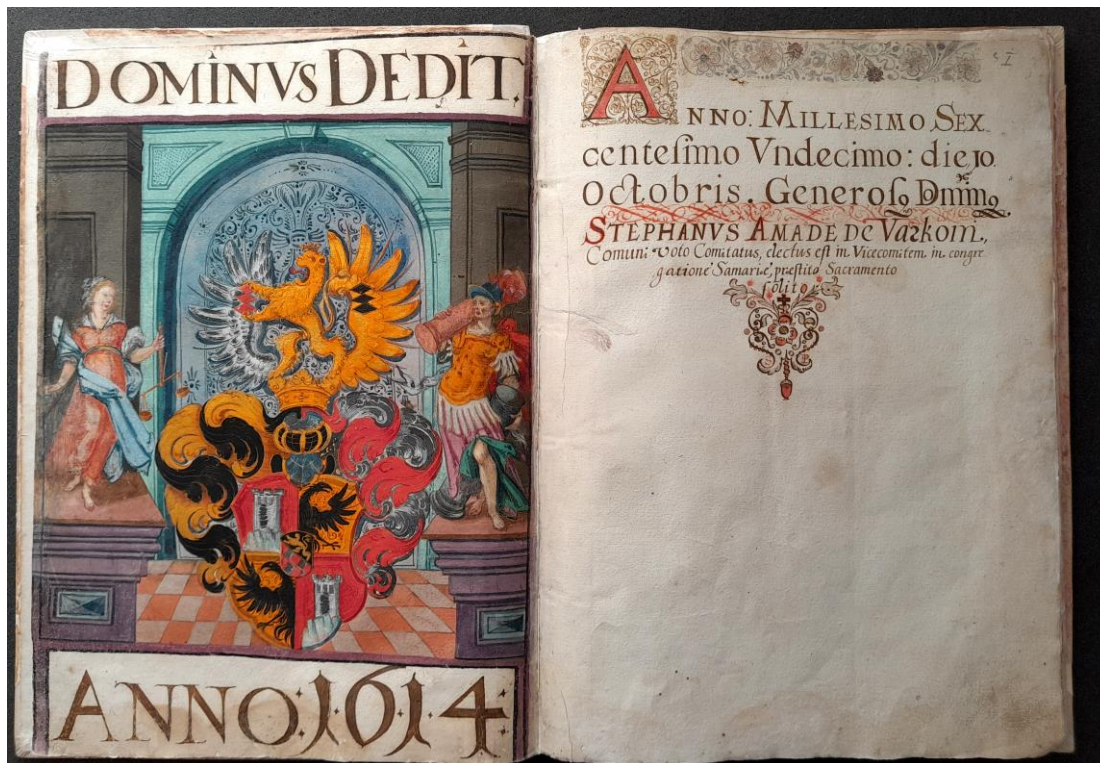 DOMINVS DEDIT.
ANNO: 1614:
I
ANNO: MILLESIMO SEX
centesimo Vndecimo: die 10
Octobris. Generosq Dnminq
STEPHANVS AMADE DE Varkom,
Comuni Voto Comitatus, electus est in Vicecomitem in congre
gatione Samariæ, præstito Sacramento
solito